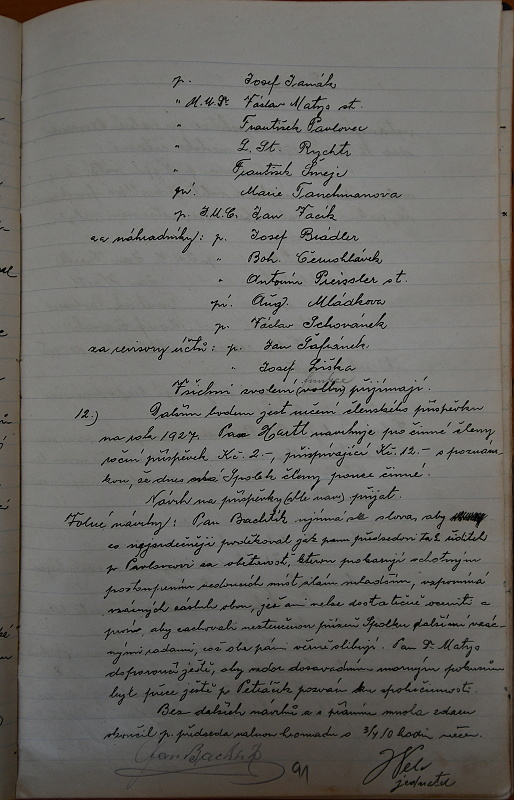 p. Josef Hanák
" M.U.Dr Václav Matys st.
" František Pavlovec
" L. St. Rychtr
" František Šmejc
pí. Marie Tanchmanova
p. J.U.C. Jan Vacík
za náhradníky: p. Josef Brádler
" Boh. Černohlávek
" Antonín Preissler st.
pí. Aug. Mládkova
p. Václav Schovánek
za revisory účtů: p. Jan Šafránek
" Josef Liška
Všichni zvolení (volbu) přijímají.
12.) Dalším bodem jest určení členského příspěvku
na rok 1927. Pan Hartl navrhuje pro činné členy
roční příspěvek Kč. 2.-, přispívající Kč. 12.- s poznám-
kou, že dnes má Spolek členy pouze činné.
Návrh na příspěvky (dle nav) přijat.
Volné návrhy: Pan Bachtík ujímá se slova, aby
co nejsrdečněji poděkoval jak panu předsedovi tak řiditeli
p Pavlovcovi za obětavost, kterou prokazují ochotným
postoupením vedoucích míst silám mladším, vzpomíná
vzácných zásluh obou, jež ani nelze dostatečně oceniti a
prosí, aby zachovali nestenčenou přízeň Spolku dalšími vzác-
nými radami, což oba páni věrně slibují. Pan Dr. Matys
doporoučí ještě, aby vzdor dosavadním marným pokusům
byl přece ještě p Petráček pozván ku spolučinnosti.
Bez dalších návrhů a s přáním mnoha zdaru
skončil p. předseda valnou hromadu o 3/4 10 hodin večer.
Jan Bachtík
jednatel